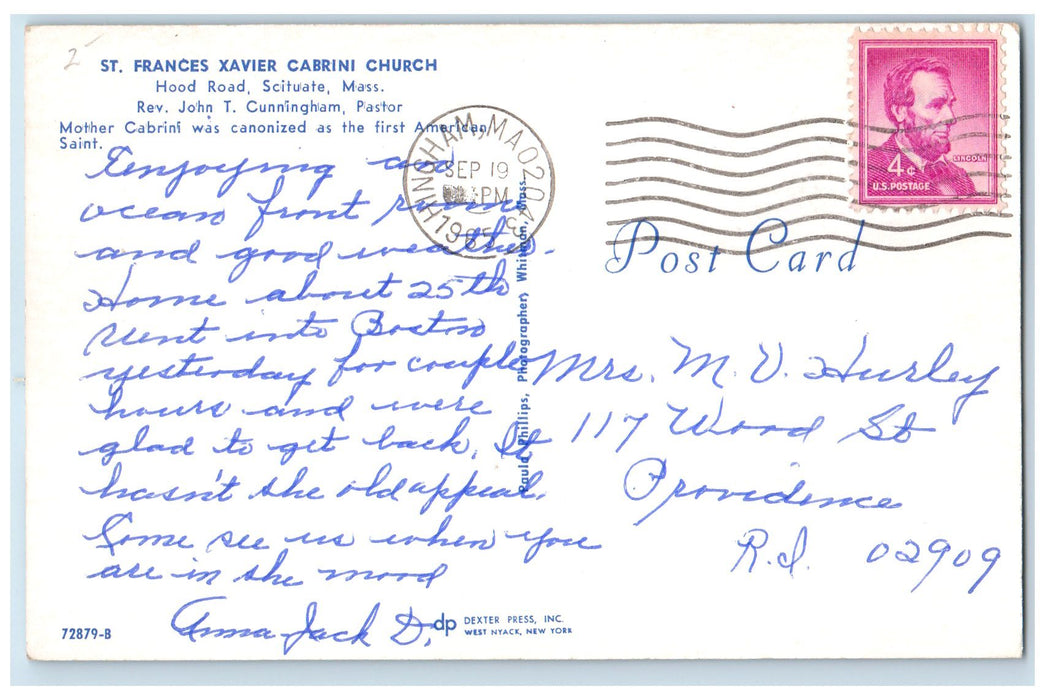 2
ST. FRANCES XAVIER CABRINI CHURCH
Hood Road, Scituate, Mass.
Rev. John T. Cunningham, Pastor
Mother Cabrini was canonized as the first American
Saint.
Enjoying our
ocean front rooms
and good weather.
Home about 25th
Went into Boston
yesterday for couple
hours and were
glad to get back. It
hasn't the old appeal.
Come see us when you
are in the mood
Anna Jack D.
72879-B
dp DEXTER PRESS, INC.
WEST NYACK, NEW YORK
Paula Phillips, Photographer, Whitman, Mass.
HINGHAM, MA 02043
SEP 19
PM
LINCOLN
4¢
U.S. POSTAGE
Post Card
Mrs. M. V. Hurley
117 Wood St
Providence
R.I. 02909